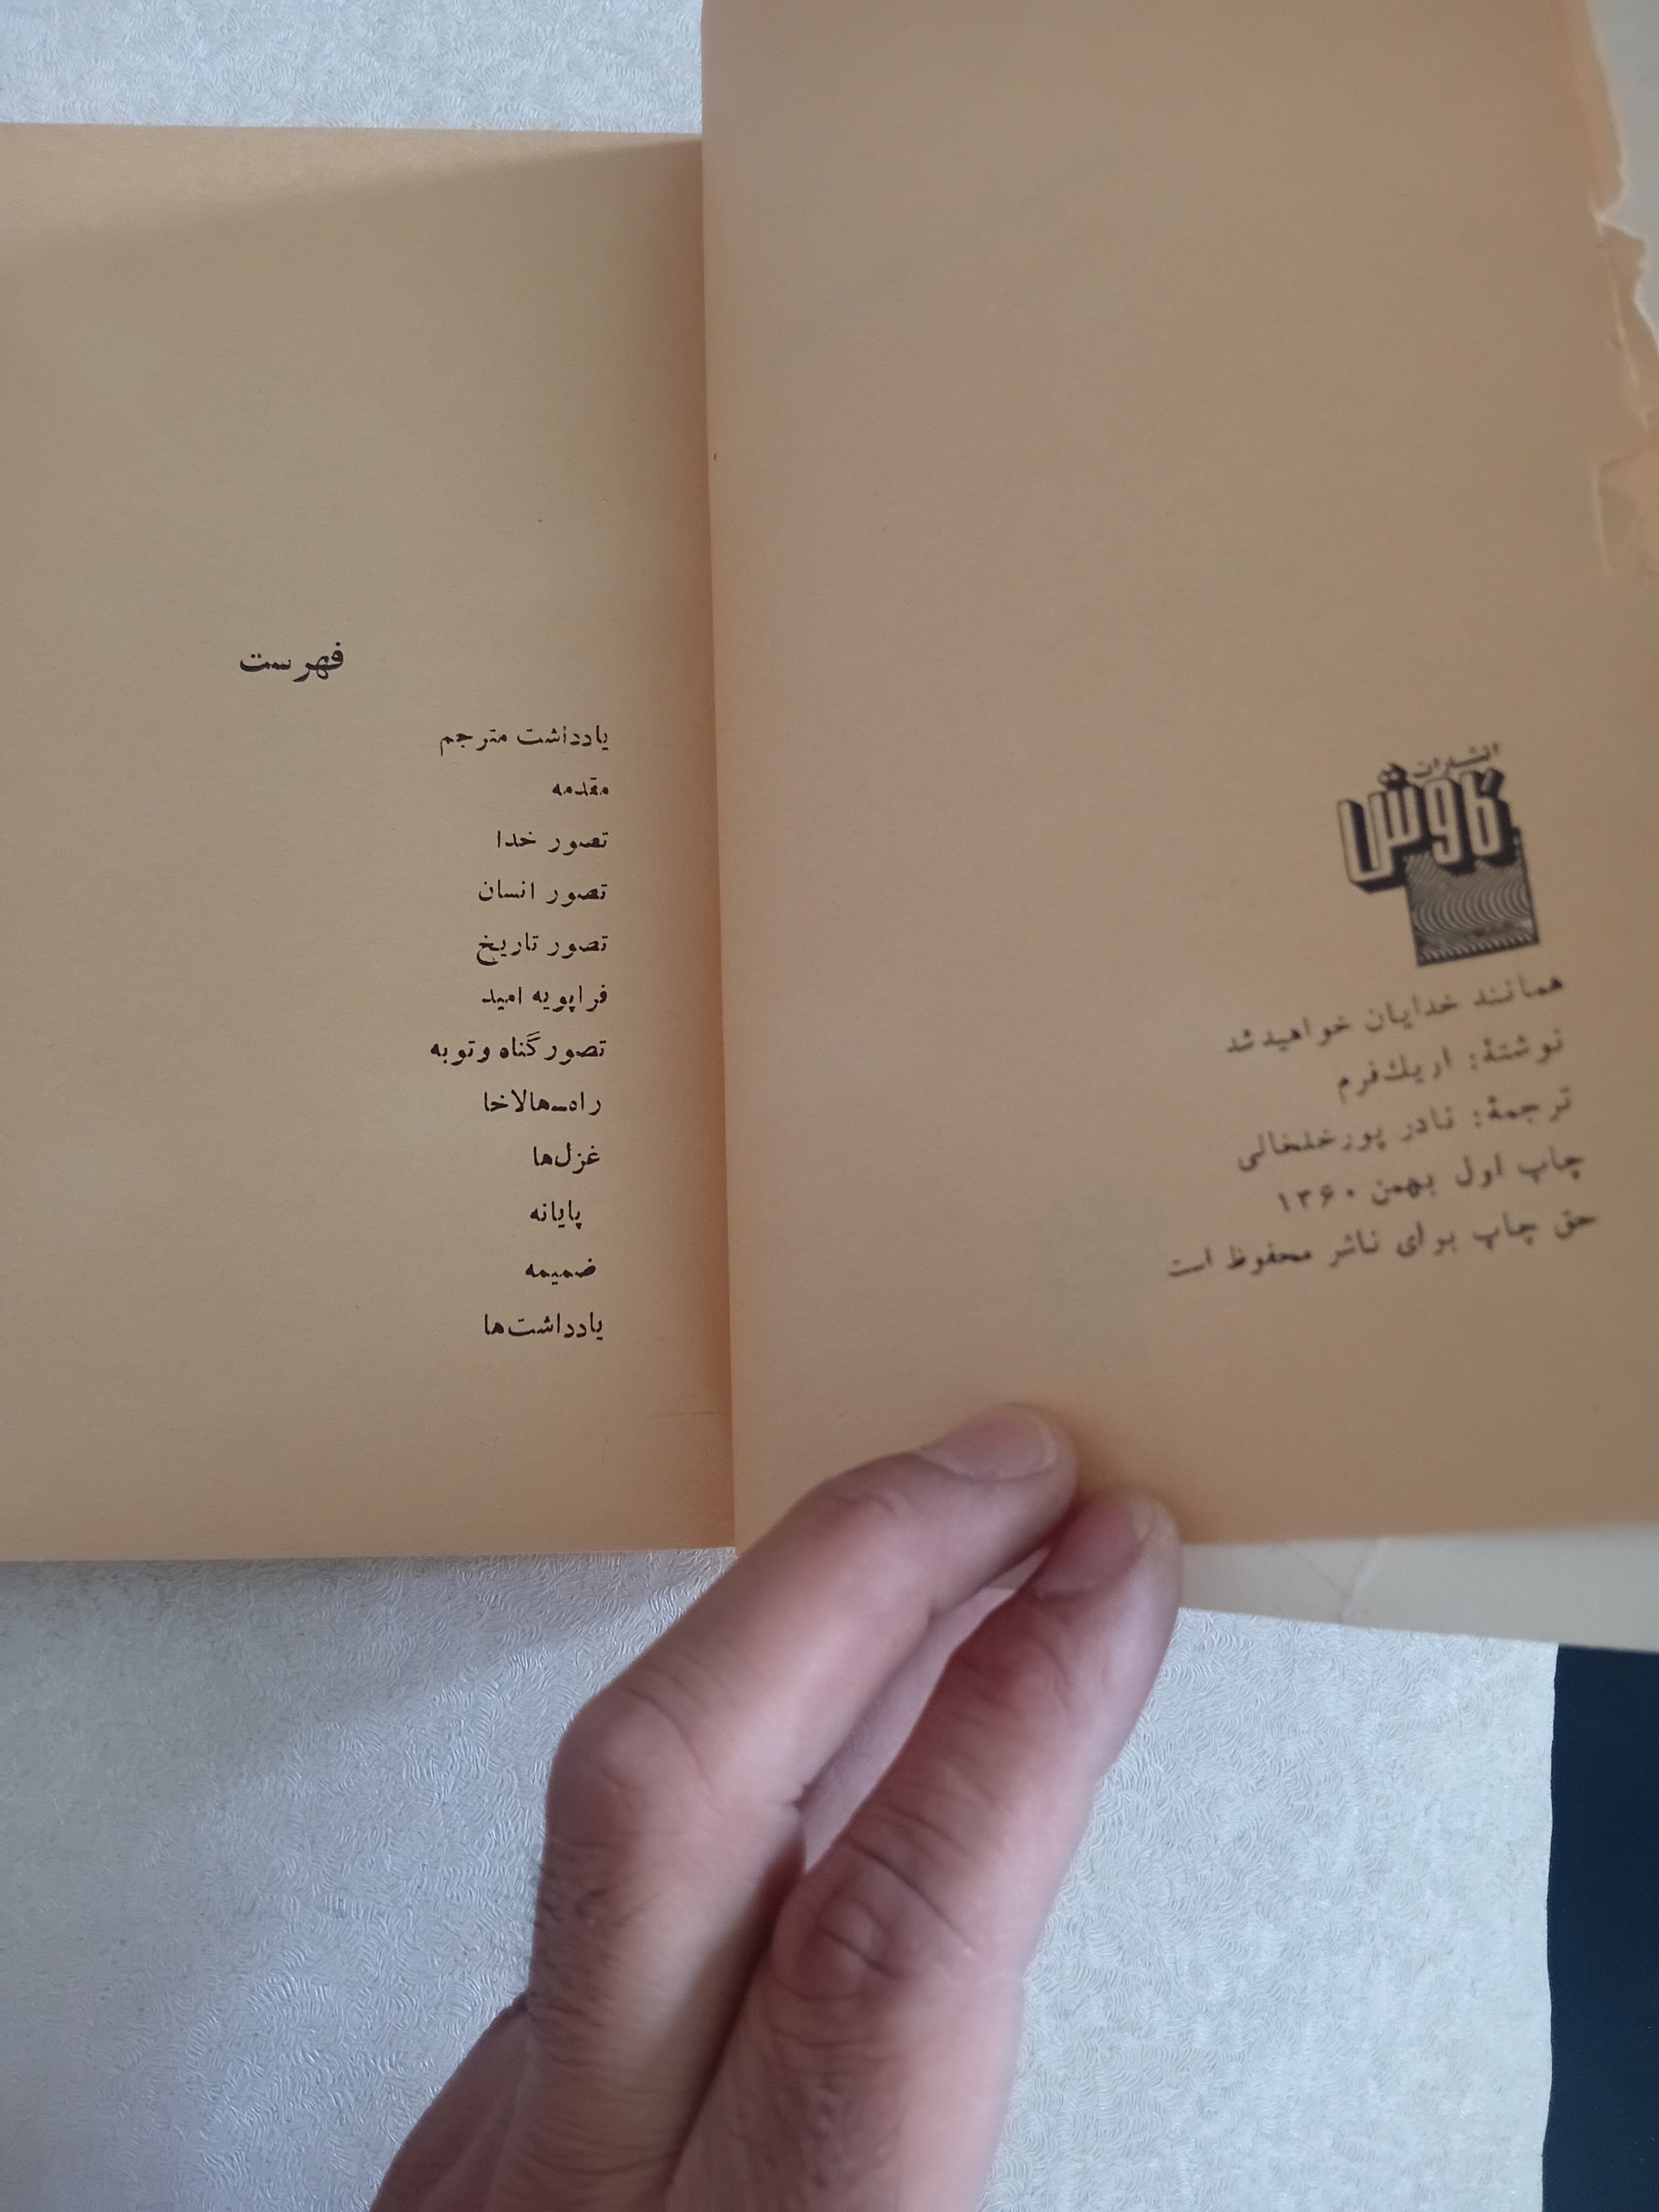 انتشارات
کاوش
همانند خدایان خواهیدشد
نوشتهٔ: اریك‌فرم
ترجمهٔ: نادر پورخلخالی
چاپ اول بهمن ۱۳۶۰
حق چاپ برای ناشر محفوظ است
فهرست
یادداشت مترجم
مقدمه
تصور خدا
تصور انسان
تصور تاریخ
فراپویه امید
تصور گناه وتوبه
راه‌ـ‌هالاخا
غزل‌ها
پایانه
ضمیمه
یادداشت‌ها